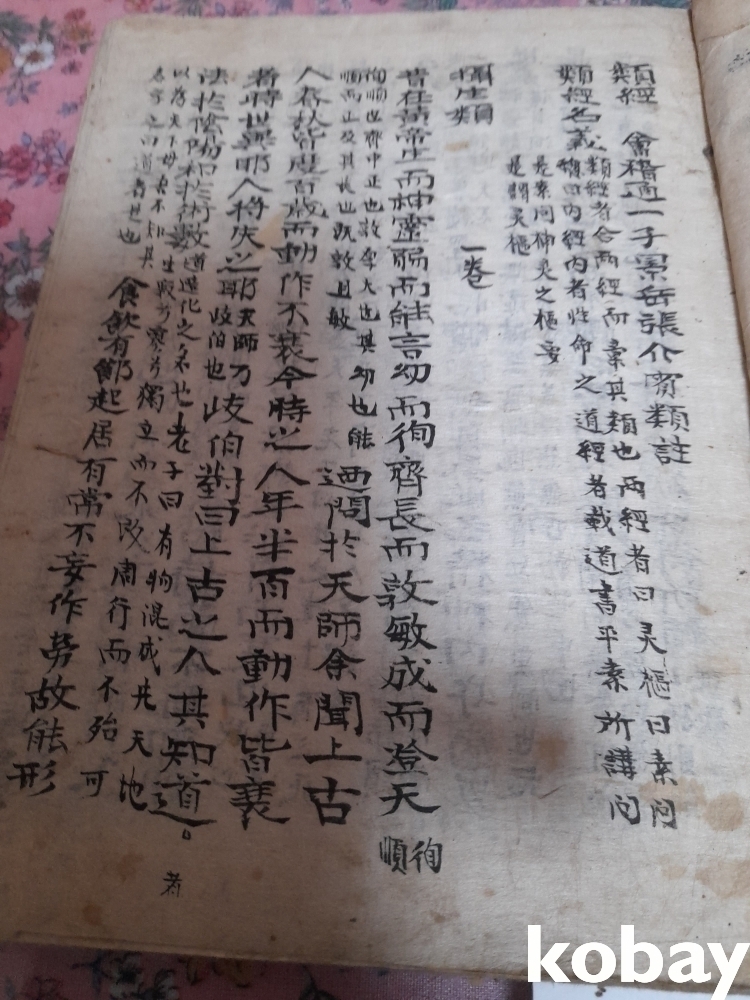 類經 會稽通一子景岳張介賓類註
類經名義 類經者合兩經而彙其類也兩經者曰灵樞曰素問
緫曰內經內者性命之道經者載道書平素所講問
是素問神灵之樞要
是謂灵樞
攝生類 一卷
昔在黃帝生而神靈弱而能言幼而徇齊長而敦敏成而登天 徇順
徇順也齊中正也敦厚大也其幼也能
順而正及其長也旣敦且敏
迺問於天師余聞上古
人春秋皆度百歲而動作不衰今時之人年半百而動作皆衰
者時世異耶人將失之耶 天師乃
岐伯也
歧伯對曰上古之人其知道
法於陰陽和於術數 道造化之名也老子曰有物混成先天地
生寂兮寥兮獨立而不改周行而不殆可
以爲天下母吾不知其
名字之曰道者是也
食飲有節起居有常不妄作勞故能形
者
kobay